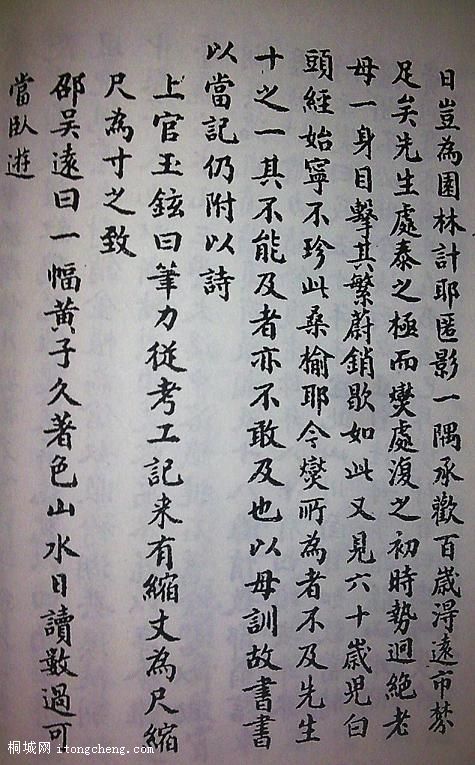 日豈為園林計耶匿影一隅承歡百歲淂遠市棼
足矣先生處泰之極而燮處復之初時勢迴絕老
母一身目擊其繁蔚銷歇如此又見六十歲兒白
頭經始寧不珍此桑榆耶令燮所為者不及先生
十之一其不能及者亦不敢及也以母訓故書書
以當記仍附以詩
上官玉鉉曰筆力從考工記来有縮丈為尺縮
尺為寸之致
邵吳遠曰一幅黃子久著色山水日讀數過可
當臥遊
桐城网 itongcheng.com